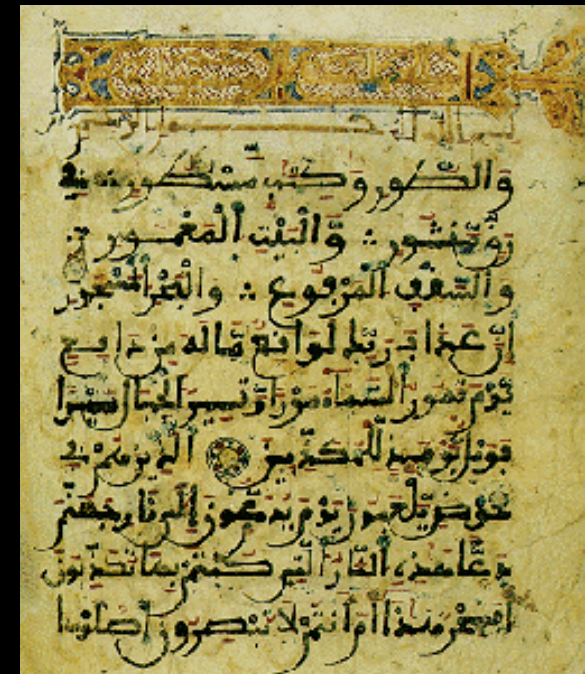 بسم الله الرحمن الرحيم
وَالطُّورِ وَكِتَبٍ مَّسْطُورٍ فِي
رَقٍّ مَّنشُورٍ وَالْبَيْتِ الْمَعْمُورِ
وَالسَّقْفِ الْمَرْفُوعِ وَالْبَحْرِ الْمَسْجُورِ
إِنَّ عَذَابَ رَبِّكَ لَوَاقِعٌ مَّا لَهُ مِن دَافِعٍ
يَوْمَ تَمُورُ السَّمَاءُ مَوْرًا وَتَسِيرُ الْجِبَالُ سَيْرًا
فَوَيْلٌ يَوْمَئِذٍ لِّلْمُكَذِّبِينَ الَّذِينَ هُمْ فِي
خَوْضٍ يَلْعَبُونَ يَوْمَ يُدَعُّونَ إِلَى نَارِ جَهَنَّمَ
دَعًّا هَذِهِ النَّارُ الَّتِي كُنتُم بِهَا تُكَذِّبُونَ
أَفَسِحْرٌ هَذَا أَمْ أَنتُمْ لَا تُبْصِرُونَ اصْلَوْهَا